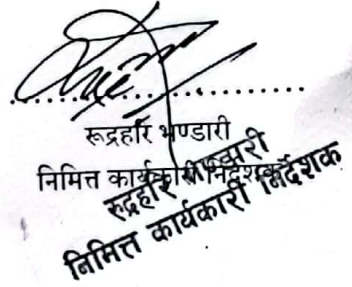 रूद्रहरि भण्डारी
निमित्त कार्यकारी निर्देशक
रुद्रहरि भण्डारी
निमित्त कार्यकारी निर्देशक